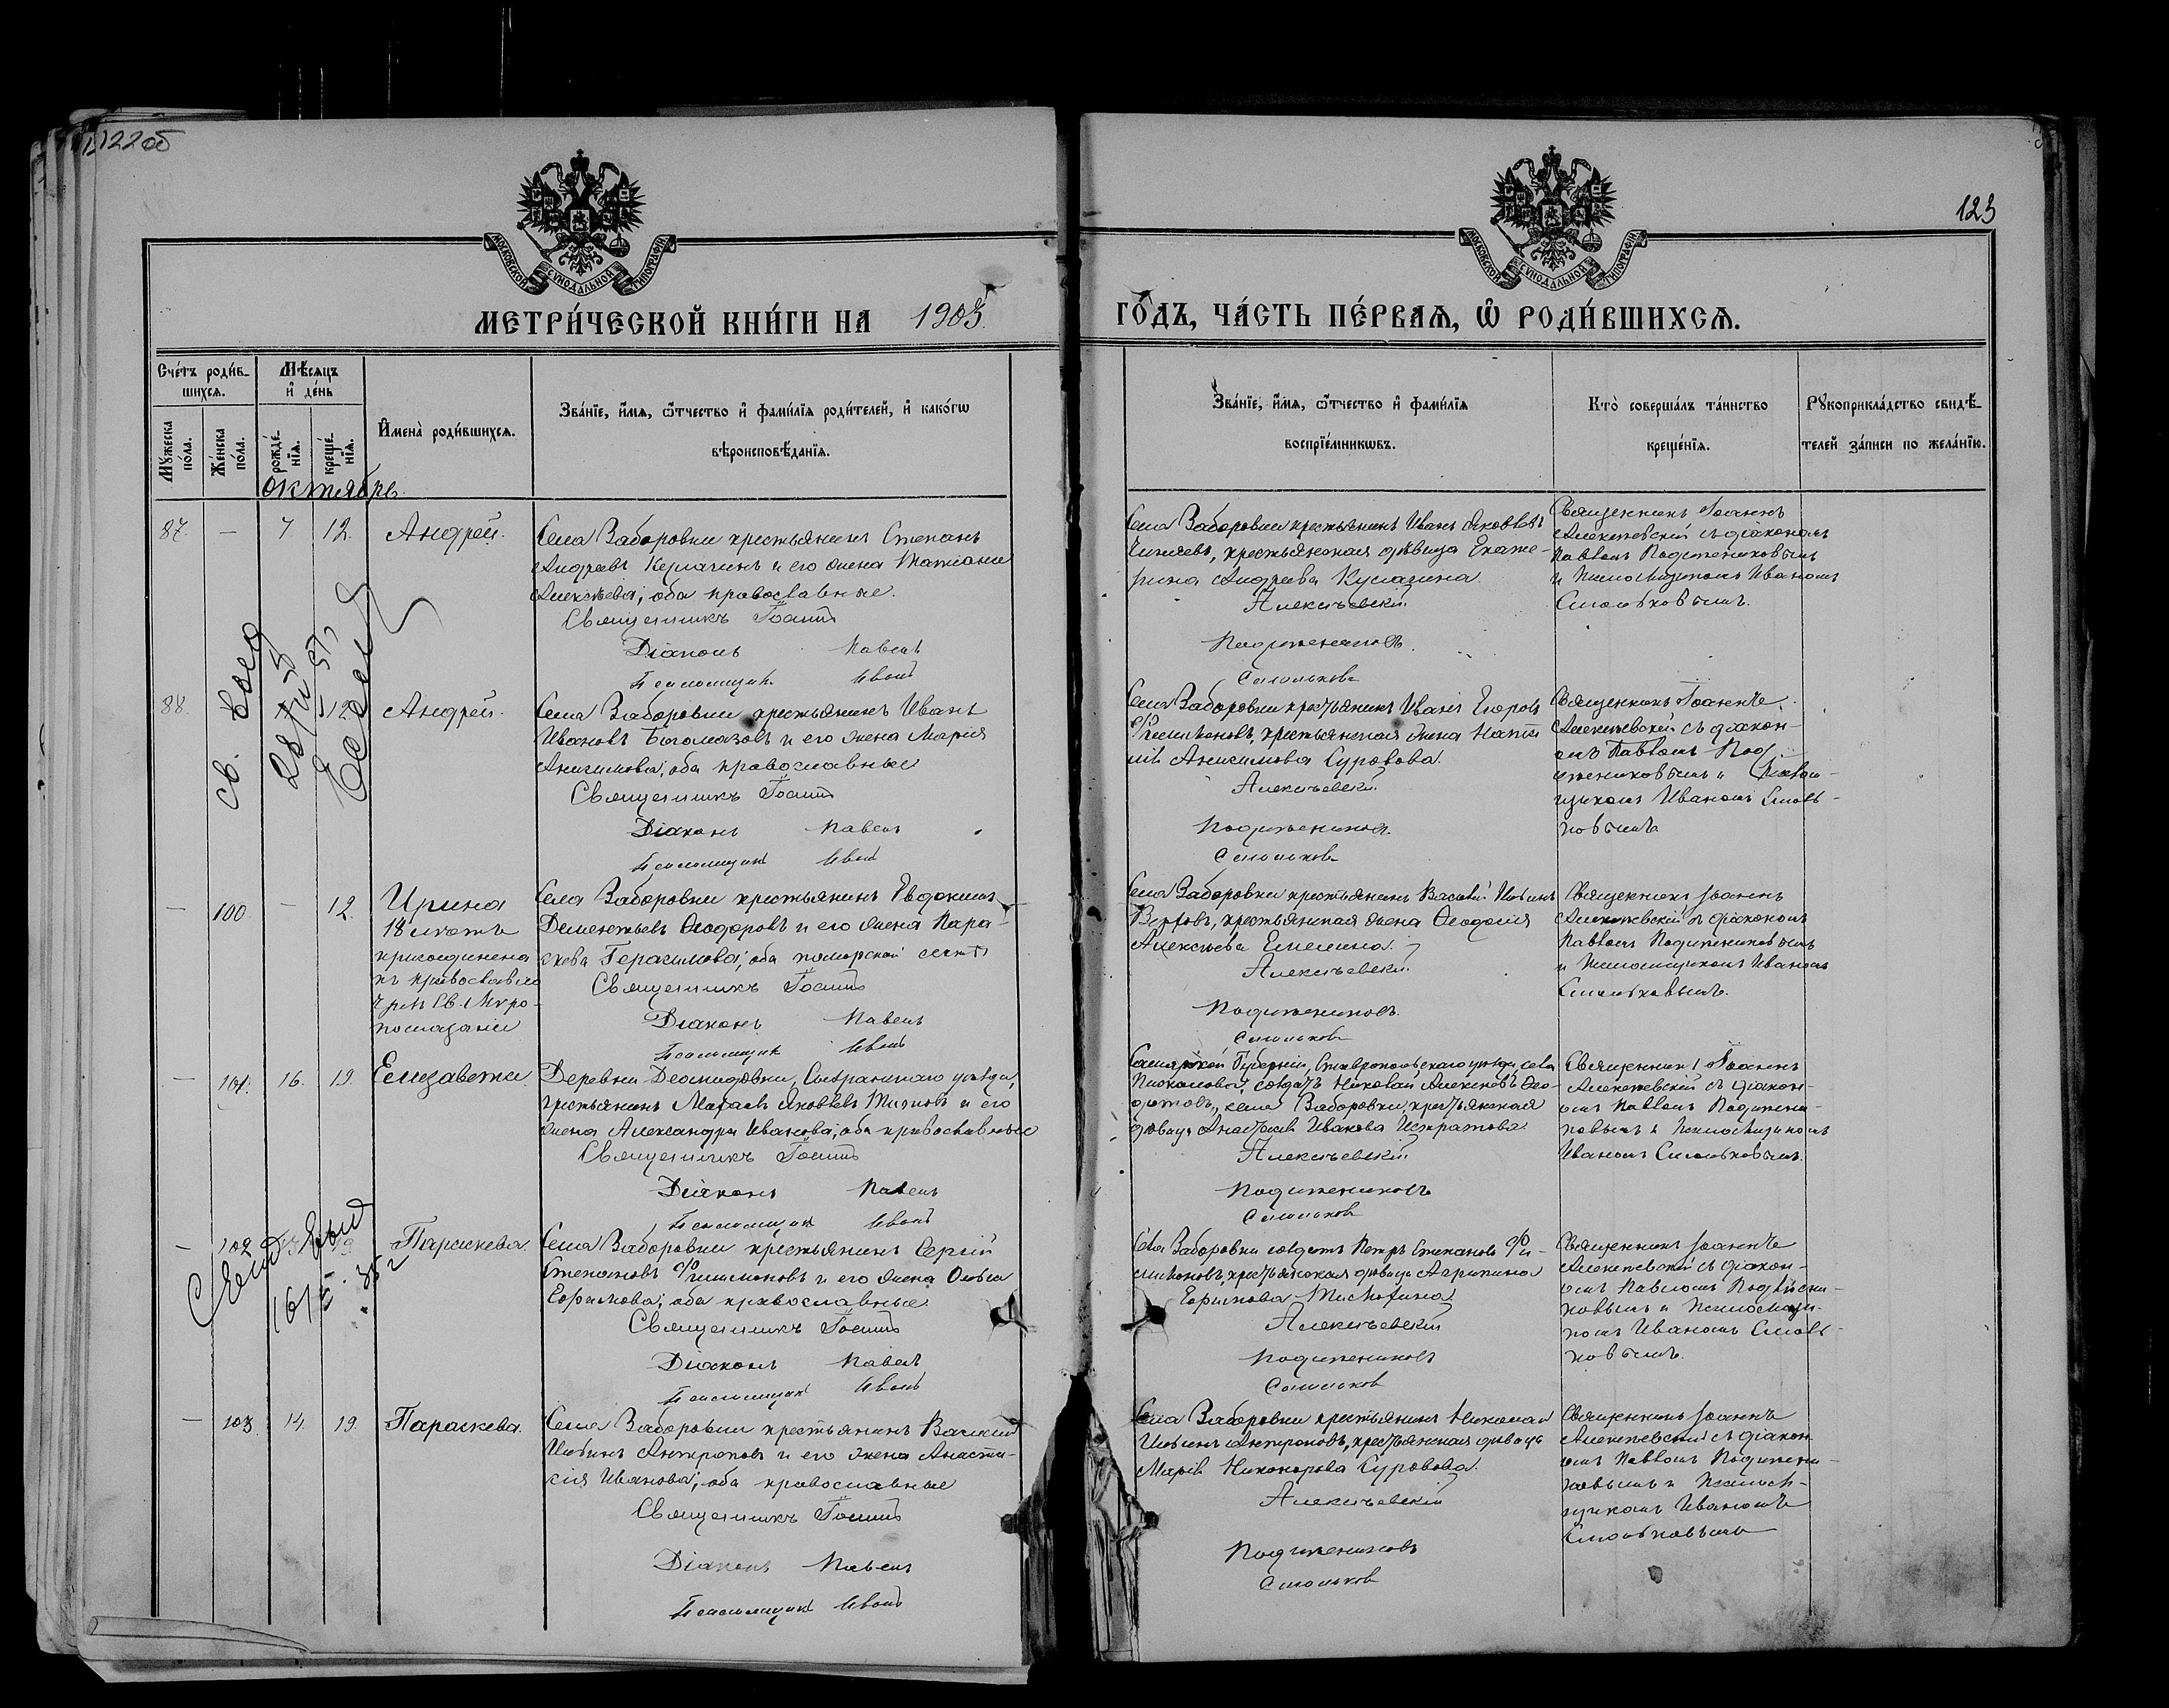 122об
123
МОСКОВСКОЙ СѴНОДАЛЬНОЙ ТИПОГРАФІИ
МОСКОВСКОЙ СѴНОДАЛЬНОЙ ТИПОГРАФІИ
МЕТРИ́ЧЕСКОЙ КНИ́ГИ НА 1903
ГО́ДЪ, ЧА́СТЬ ПЕ́РВАѦ, Ѡ҆ РОДИ́ВШИХСѦ.
Сче́тъ роди́в-
шихсѧ.
Мꙋ́жеска
по́ла.
Же́нска
по́ла.
Мѣ́сѧцъ
и҆ де́нь
рожде́-
нїѧ.
креще́-
нїѧ.
И҆мена̀ роди́вшихсѧ.
Зва́нїе, и҆́мѧ, ѻ҆́тчество и҆ фами́лїѧ роди́телей, и҆ како́гѡ
вѣроисповѣ́данїѧ.
Зва́нїе, и҆́мѧ, ѻ҆́тчество и҆ фами́лїѧ
воспрїе́мникѡвъ.
Кто̀ соверша́лъ та́инство
креще́нїѧ.
Рꙋкоприкла́дство свидѣ́-
телей за́писи по жела́нїю.
Октябрь.
87. — 7 12. Андрей.
Села Заборовки крестьянинъ Степанъ
Андреевъ и его жена Татіана
Алексѣева; оба православные.
Священникъ Іоаннъ
Діаконъ Павелъ
Псаломщикъ Иванъ
Села Заборовки крестьянинъ Иванъ Яковлевъ
крестьянская дѣвица Екате-
рина Андреева
Алексѣевскій.
Поджениковъ.
Смольковъ
Священникъ Іоаннъ
Алексѣевскій съ діакономъ
Павломъ Поджениковымъ
и Псаломщикомъ Иваномъ
Смольковымъ.
88 12. Андрей.
Села Заборовки крестьянинъ Иванъ
Ивановъ Богомазовъ и его жена Марія
Анисимова; оба православные
Священникъ Іоаннъ
Діаконъ Павелъ
Псаломщикъ Иванъ
Села Заборовки крестьянинъ Иванъ Егоровъ
Филимоновъ, крестьянская жена
Анисимова Суровова.
Алексѣевскій.
Поджениковъ.
Смольковъ
Священникъ Іоаннъ
Алексѣевскій съ діакон-
омъ Павломъ Под
жениковымъ и Псалом-
щикомъ Иваномъ Смоль-
ковымъ
— 100 — 12. Ирина
18 лѣтъ
присоединена
къ православію
чрезъ Св. Мѵро-
помазаніе
Села Заборовки крестьянинъ Евдокимъ
Дементьевъ Ѳеодоровъ и его жена Пара-
скева Герасимова; оба поморской секты
Священникъ Іоаннъ
Діаконъ Павелъ
Псаломщикъ Иванъ
Села Заборовки крестьянинъ Василій Ильинъ
крестьянская жена Ѳеодосія
Алексѣева Емелина.
Алексѣевскій.
Поджениковъ.
Смольковъ
Священникъ Іоаннъ
Алексѣевскій съ діакономъ
Павломъ Поджениковымъ
и Псаломщикомъ Иваномъ
Смольковымъ.
— 101. 16. 19. Елизавета.
Деревни Демидовки, Сызранскаго уѣзда,
крестьянинъ Яковлевъ и его
жена Александра Иванова; оба православные
Священникъ Іоаннъ
Діаконъ Павелъ
Псаломщикъ Иванъ
Самарской Губерніи, Ставропольскаго уѣзда, села
солдатъ Николай Алексѣевъ Ѳео-
дотовъ, села Заборовки, крестьянская
дѣвица Анастасія Иванова Истратова.
Алексѣевскій
Поджениковъ
Смольковъ
Священникъ Іоаннъ
Алексѣевскій съ діакон-
омъ Павломъ Поджени-
ковымъ и Псаломщикомъ
Иваномъ Смольковымъ.
— 102 19. Параскева.
Села Заборовки крестьянинъ Сергій
Степановъ Филимоновъ и его жена Ольга
Ефимова; оба православные.
Священникъ Іоаннъ
Діаконъ Павелъ
Псаломщикъ Иванъ
Села Заборовки солдатъ Петръ Степановъ Фи-
лимоновъ, крестьянская дѣвица Агрипина
Ефимова
Алексѣевскій
Поджениковъ
Смольковъ
Священникъ Іоаннъ
Алексѣевскій съ діакон-
омъ Павломъ Поджени-
ковымъ и Псаломщи-
комъ Иваномъ Смоль-
ковымъ.
— 103. 14. 19. Параскева.
Села Заборовки крестьянинъ Василій
Ильинъ Антроповъ и его жена Анаста-
сія Иванова; оба православные
Священникъ Іоаннъ
Діаконъ Павелъ
Псаломщикъ Иванъ
Села Заборовки крестьянинъ Николай
Ильинъ Антроповъ, крестьянская дѣвица
Марія Никонорова Суровова.
Алексѣевскій
Поджениковъ
Смольковъ
Священникъ Іоаннъ
Алексѣевскій съ діакон-
омъ Павломъ Поджени-
ковымъ и Псалом-
щикомъ Иваномъ
Смольковымъ